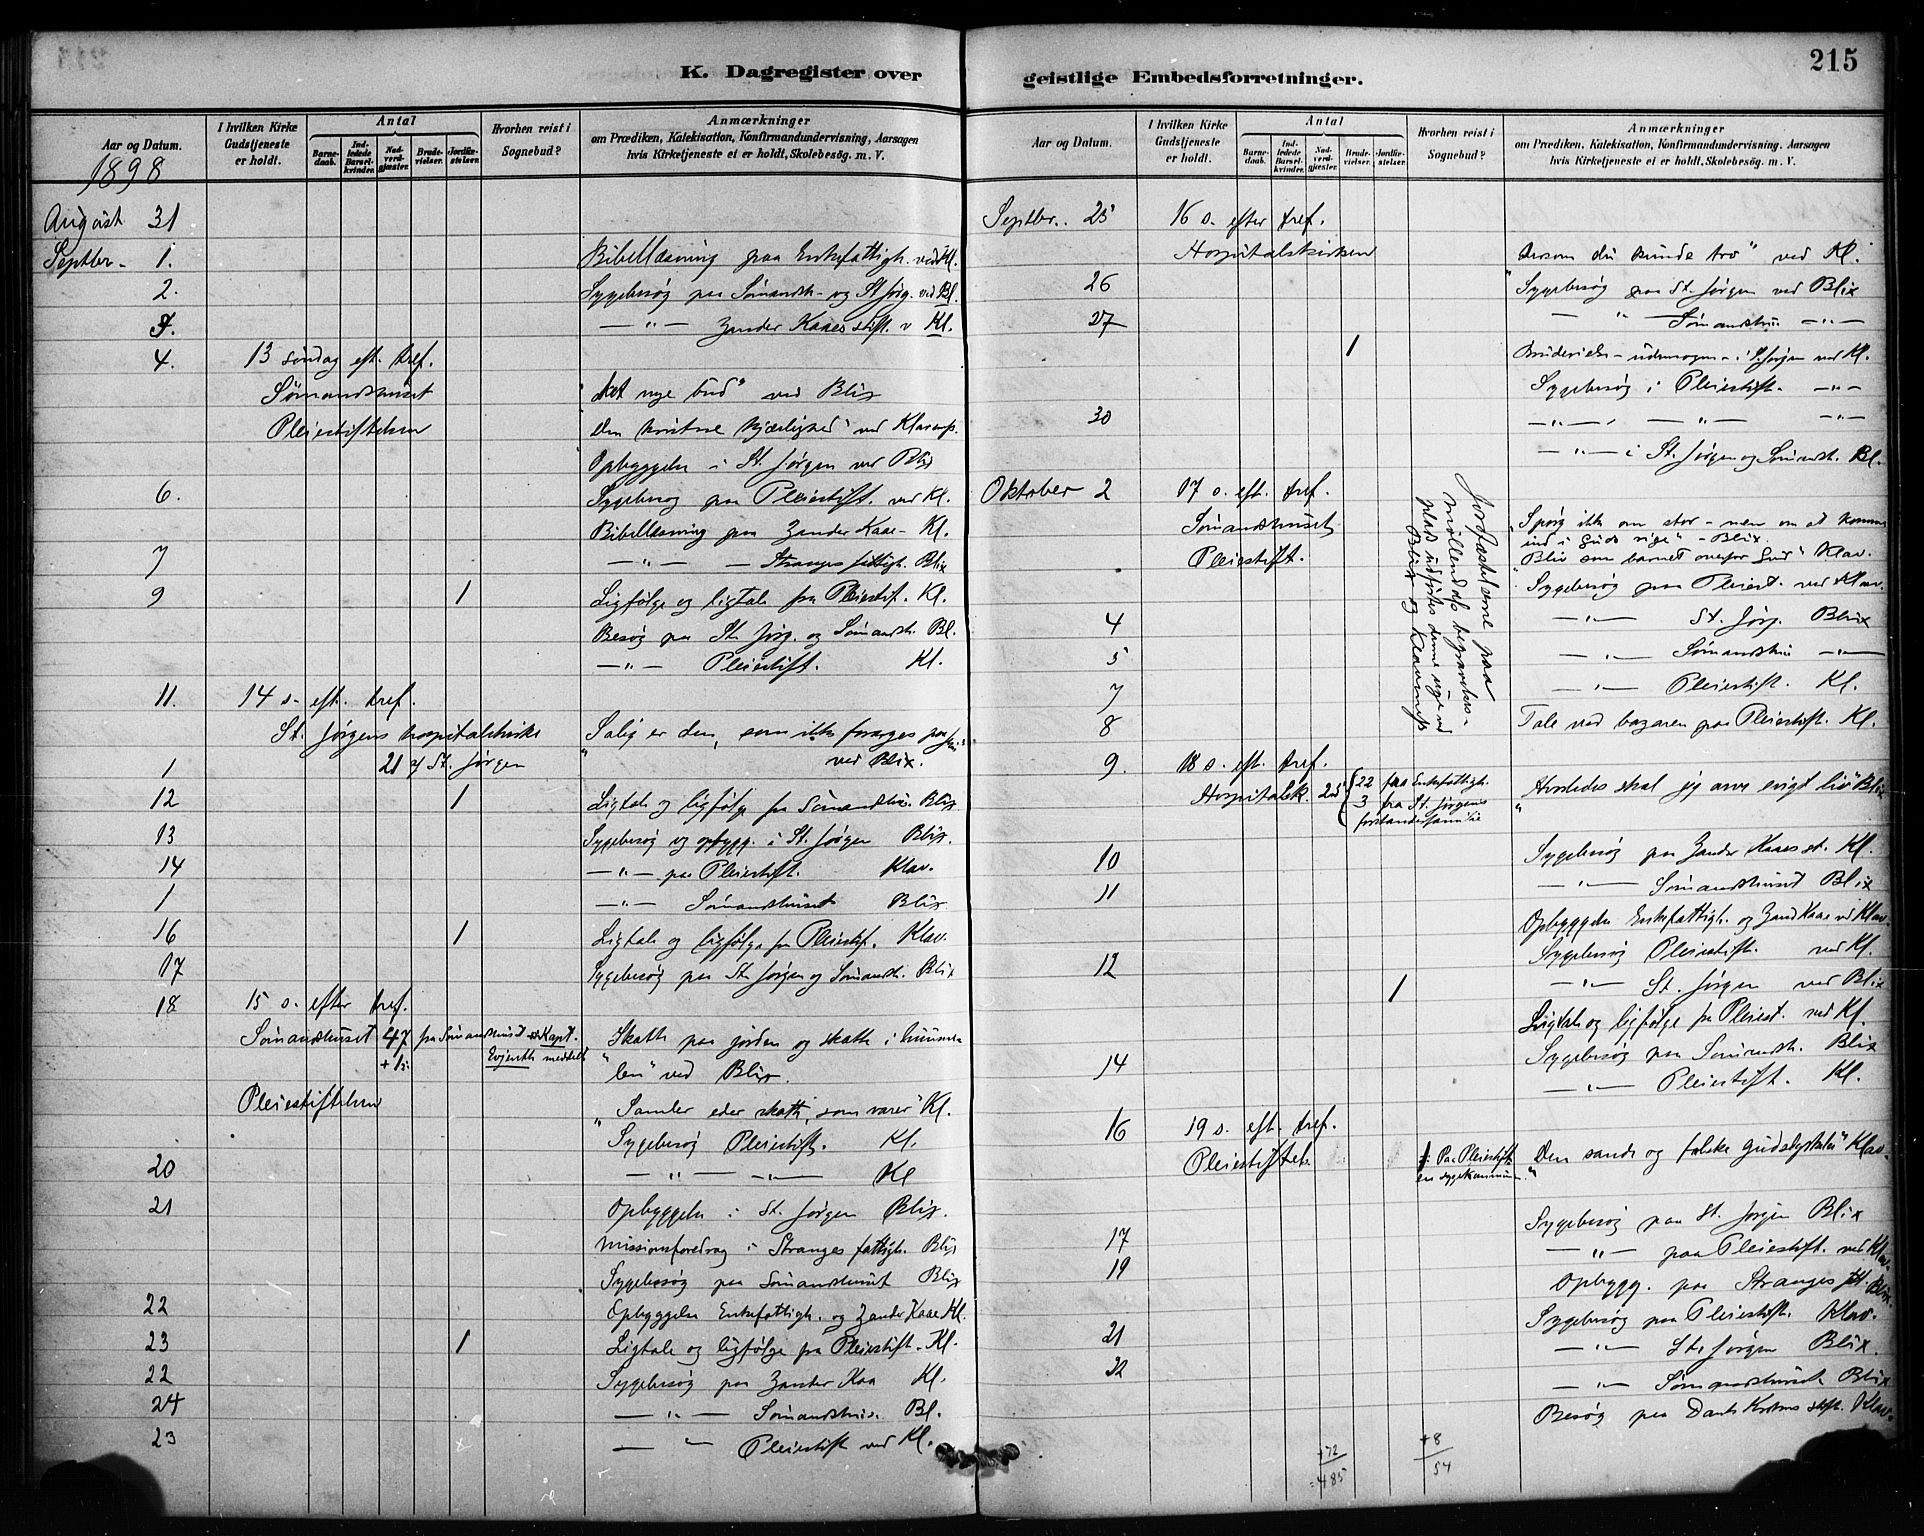 215
K. Dagregister over
Aar og Datum.
I hvilken Kirke Gudstjeneste er holdt.
Antal
Barnedaab.
Indledede Barselkvinder.
Nadverdgjæster.
Brudevielser.
Jordfæstelser.
Hvorhen reist i Sognebud?
Anmærkninger
om Prædiken, Katekisation, Konfirmandundervisning, Aarsagen
hvis Kirketjeneste ei er holdt, Skolebesøg. m. V.
1898
August 31
Septbr. 1. Bibellæsning paa Enkefattigh. ved Kl.
2. Sygebesøg paa Sømandsh. og St. Jørg. ved Bl.
3. — " — Zander Kaaes stift. v Kl.
4. 13 søndag eft. tref.
Sømandshuset "Det nye bud" ved Blix
Pleiestiftelsen "Den kristne kjærlighed" ved Klavnæs.
Opbyggelse i St. Jørgen ved Blix
6. Sygebesøg paa Pleiestift. ved Kl.
Bibellæsning paa Zander Kaae - Kl.
7 — " — Stranges fattigh. Blix
9 1 Ligfølge og ligtale fra Pleiestif. Kl.
Besøg paa St. Jørg. og Sømandsh. Bl.
— " — Pleiestift. Kl.
11. 14 s. eft. tref.
St. Jørgens hospitalskirke "Salig er den, som ikke forarges paa
1 21 af St. Jørgen ved Blix.
12 1 Ligtale og ligfølge fra Sømandshus. Blix
13 Sygebesøg og opbygg. i St. Jørgen Blix.
14 — " — paa Pleiestift. Klav.
1 — " — Sømandshuset Blix
16 1 Ligtale og ligfølge fra Pleiestif. Klav.
17 Sygebesøg paa St. Jørgen og Sømandsh. Blix
18 15 s. efter tref.
Sømandshuset 47 fra Sømandshuset Kapt. "Skatte paa jorden og skatte i himme
+ 1 Evjenth meddelt len" ved Blix.
Pleiestiftelsen "Samler eder skatte, som varer" Kl.
Sygebesøg Pleiestift. Kl.
20 — " — — " — Kl
21 Opbyggelse i St. Jørgen Blix.
Missionsforedrag i Stranges fattigh. Blix
Sygebesøg paa Sømandshuset Blix
22 Opbyggelse Enkefattigh. og Zander Kaae Kl.
23 1 Ligtale og ligfølge fra Pleiestift. Kl.
22 Sygebesøg paa Zander Kaa Kl.
24 — " — Sømandshus. Bl.
23 — " — Pleiestift ved Kl.
geistlige Embedsforretninger.
Aar og Datum.
I hvilken Kirke Gudstjeneste er holdt.
Antal
Barnedaab.
Indledede Barselkvinder.
Nadverdgjæster.
Brudevielser.
Jordfæstelser.
Hvorhen reist i Sognebud?
Anmærkninger
om Prædiken, Katekisation, Konfirmandundervisning, Aarsagen
hvis Kirketjeneste ei er holdt, Skolebesøg. m. V.
Septbr. 25 16 s. efter tref.
Hospitalskirken "Dersom du kunde tro" ved Kl.
26 Sygebesøg paa St. Jørgen ved Blix
27 — " — Sømandshus — " —
1 Brudevielse i St. Jørgen ved Kl.
Sygebesøg i Pleiestift. — " —
30 — " — — " — — " —
— " — i St. Jørgen og Sømandsh. Bl.
Oktober 2 17 s. eft. tref.
Sømandshuset "Spørg ikke om stor - men om at komme
ind i Guds rige" - Blix.
Pleiestift. "Bliv som barnet overfor Gud" Klav.
Sygebesøg paa Pleiest. ved Klav.
4 — " — St. Jørg. Blix
5 — " — Sømandshus — " —
7 — " — Pleiestift. Kl.
8 Tale ved bazaren paa Pleiestift. Kl.
Jordfæstelserne paa
Møllendals begravelses-
plads udførtes denne uge ved
Blix og Klavnæs
9. 18 s. eft. tref.
Hospitalsk. 25 { 22 fra Enkefattigh. "Hvorledes skal jeg arve evigt liv" Blix
3 fra St. Jørgens
forstanderfamilie
10 Sygebesøg paa Zander Kaaes st. Kl.
11 — " — Sømandshuset Blix
Opbyggelse Enkefattigh. og Zand Kaae v Klav.
12 Sygebesøg Pleiestift. ved Kl.
— " — St. Jørgen ved Blix
1 Ligtale og ligfølge fra Pleiest. ved Kl.
14 Sygebesøg paa Sømandsh. Blix
— " — Pleiestift. Kl.
16 19 s. eft. tref.
Pleiestiftels. 1: Paa Pleiestift. "Den sande og falske gudsdyrkelse" Klav.
en sygekommunion
Sygebesøg paa St. Jørgen Blix
17 — " — paa Pleiestift. ved Klav.
19 Opbygg. paa Stranges ft. Blix.
Sygebesøg paa Pleiestift. Klav.
21 — " — St. Jørgen Blix.
22 — " — Sømandshuset Blix
Besøg paa Danck Krohns stift. Klav.
+72
= 485
+8
54